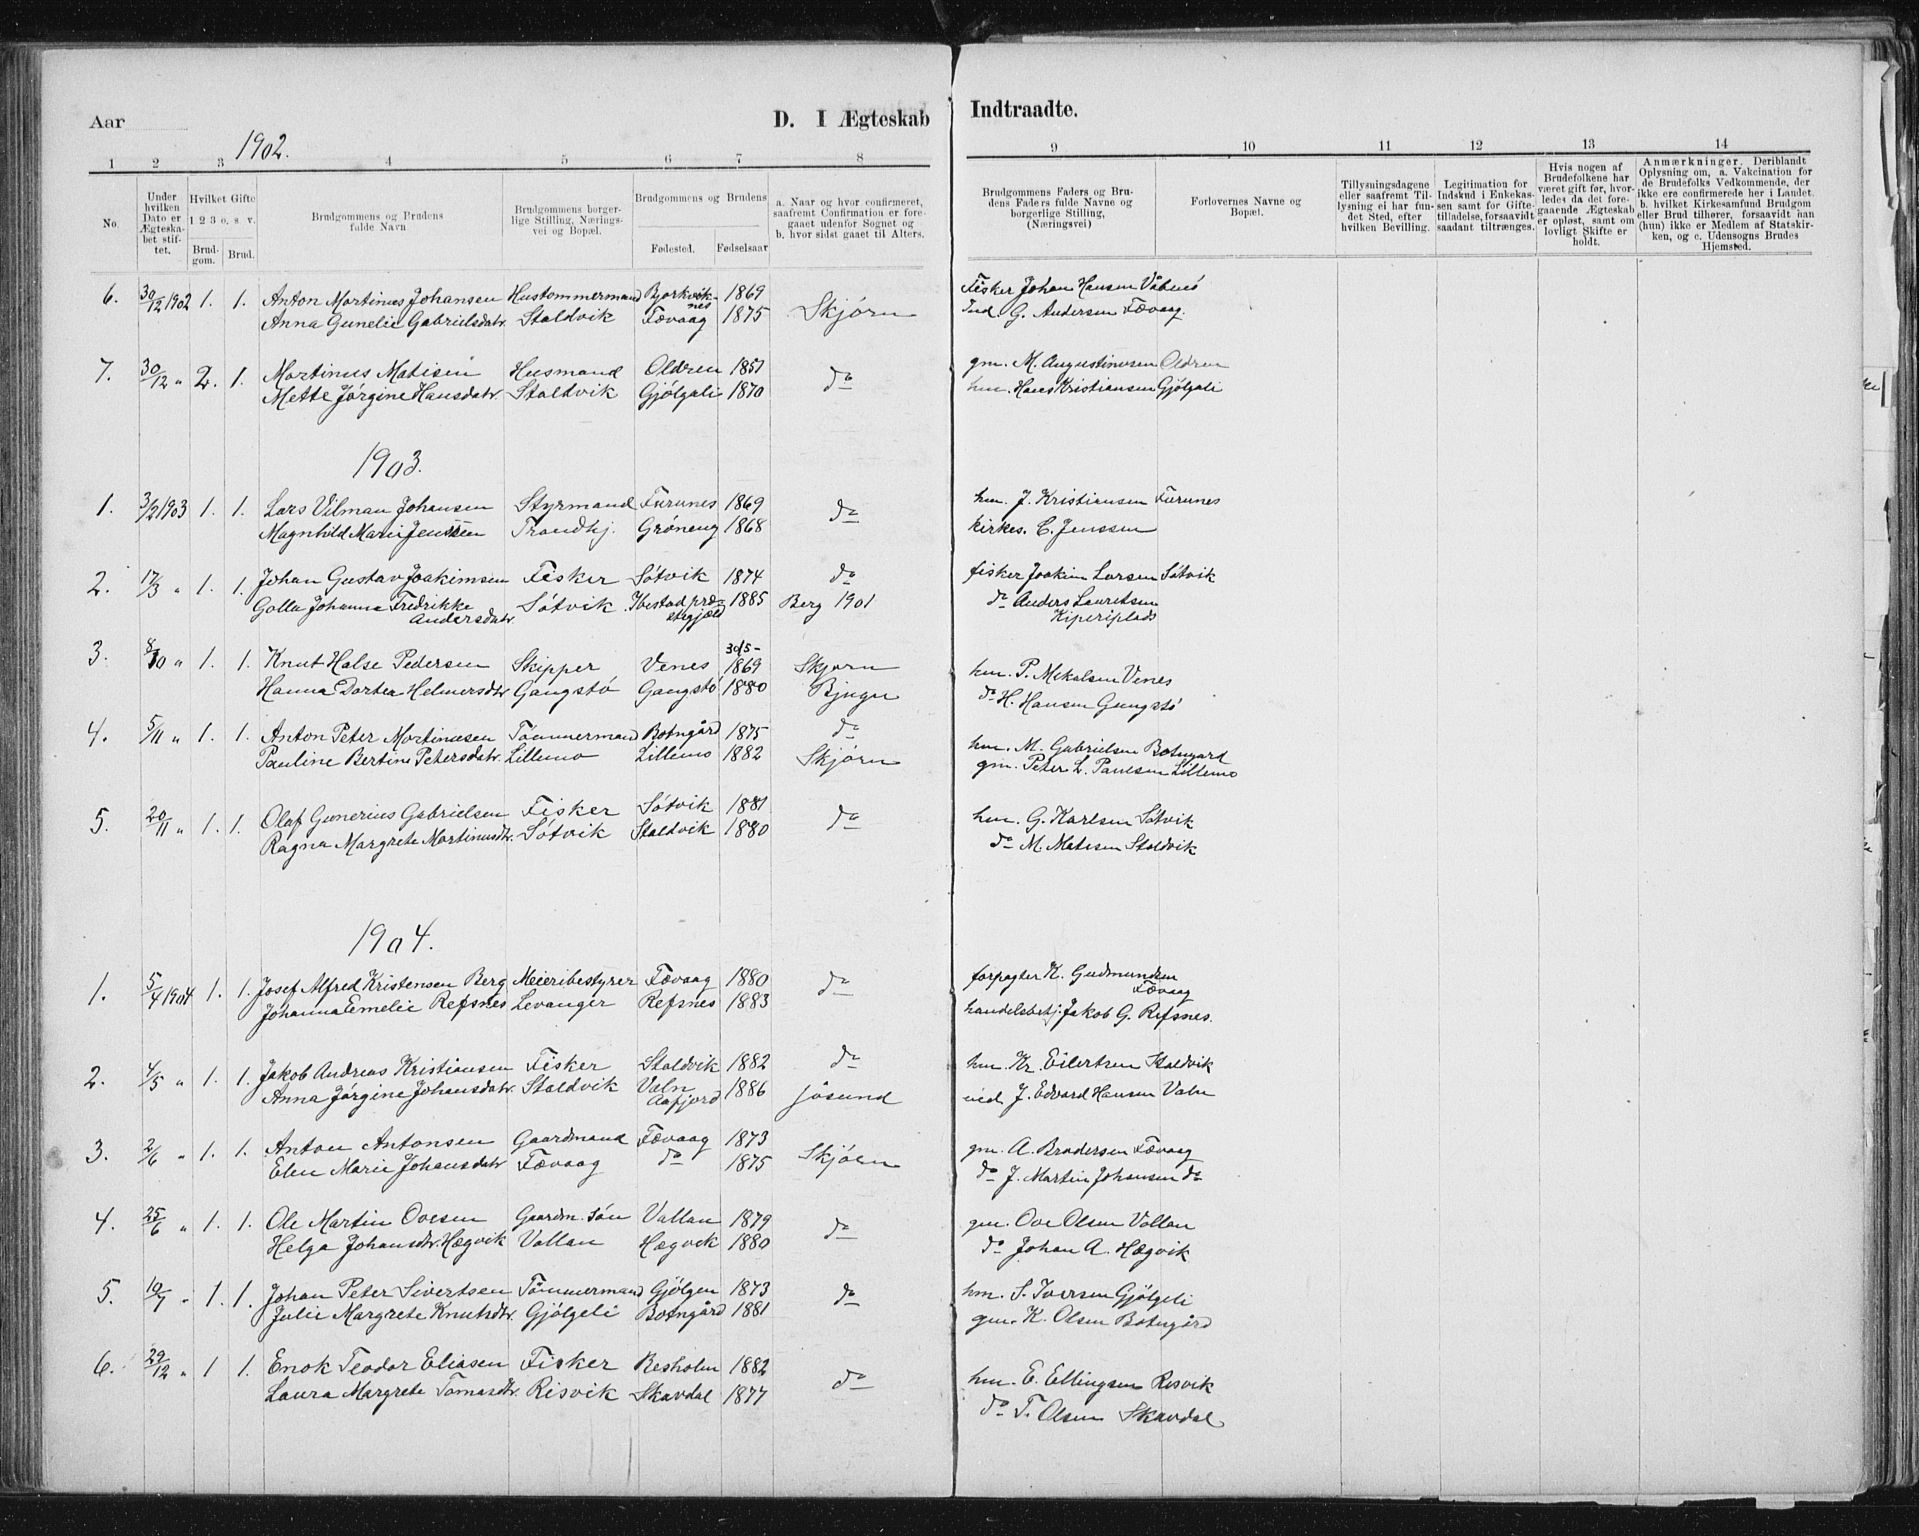 Aar
1902.
D. I Ægteskab Indtraadte.
1 2 3 4 5 6 7 8 9 10 11 12 13 14
No.
Under hvilken Dato er Ægteska-bet stif-tet.
Hvilket Gifte
1 2 3 o. s. v.
Brud-gom. Brud.
Brudgommens og Brudens fulde Navn
Brudgommens borger-lige Stilling, Nærings-vei og Bopæl.
Brudgommens og Brudens
Fødested. Fødselsaar
a. Naar og hvor confirmeret, saafremt Confirmation er fore-gaaet udenfor Sognet og b. hvor sidst gaaet til Alters.
Brudgommens Faders og Bru-dens Faders fulde Navne og borgerlige Stilling, (Næringsvei)
Forlovernes Navne og Bopæl.
Tillysningsdagene eller saafremt Til-lysning ei har fun-det Sted, efter hvilken Bevilling.
Legitimation for Indskud i Enkekas-sen samt for Gifte-tilladelse, forsaavidt saadant tiltrænges.
Hvis nogen af Brudefolkene har været gift før, hvor-ledes da det fore-gaaende Ægteskab er opløst, samt om lovligt Skifte er holdt.
Anmærkninger. Deriblandt Oplysning om, a. Vakcination for de Brudefolks Vedkommende, der ikke ere confirmerede her i Landet. b. hvilket Kirkesamfund Brudgom eller Brud tilhører, forsaavidt han (hun) ikke er Medlem af Statskir-ken, og c. Udensogns Brudes Hjemsted.
6. 30/12 1902 1. 1. Anton Martinus Johansen Hustømmermand Bjørkvik-nes 1869 Fisker Johan Hansen
Anna Gunelie Gabrielsdatr. Staldvik Fævaag 1875 Skjørn Ind. G. Andersen Fævaag.
7. 30/12 " 2. 1. Martinus Matisen Husmand Oldren 1851 do gm. M. Augustinusen Oldren
Mette Jørgine Hansdatr. Staldvik Gjølgali 1870 hm. Hans Kristiansen Gjølgali
1903.
1. 3/2 1903 1. 1. Lars Vilman Johansen Styrmand Furunes 1869 do hm. J. Kristiansen Furunes
Magnhild Marie Jenssen Trondhj. Grøneng 1868 kirkes. C. Jenssen
2. 17/3 " 1. 1. Johan Gustav Joakimsen Fisker Søtvik 1874 do fisker Joakim Larsen Søtvik
Golla Johanna Fredrikke Andersdatr. Søtvik Ibestad præ-stegjæld 1885 Berg 1901 do Anders Lauritsen
3. 8/10 " 1. 1. Knut Halse Pedersen Skipper Venes 30/5- 1869 Skjørn hm. P. Mikalsen Venes
Hanna Dortea Helmersdtr Gangstø Gangstø 1880 Bjugn do H. Hansen Gangstø
4. 5/11 " 1. 1. Anton Peter Martinusen Tømmermand Botngård 1875 do hm. M. Gabrielsen Botngard
Pauline Bertine Petersdatr. Lillemo Lillemo 1882 Skjørn gm. Peter L. Paulsen Lillemo
5. 20/11 " 1. 1. Olaf Gunerius Gabrielsen Fisker Søtvik 1881 do hm. G. Karlsen Søtvik
Ragna Margrete Martinusdtr. Søtvik Staldvik 1880 do M. Matisen Staldvik
1904.
1. 5/4 1904 1. 1. Josef Alfred Kristensen Berg Meieribestyrer Fævaag 1880 do forpagter K. Gudmundsen Fævaag
Johanna Emelie Refsnes Levanger Refsnes 1883 handelsbetj. Jakob G. Refsnes.
2. 4/5 " 1. 1. Jakob Andreas Kristiansen Fisker Staldvik 1882 do hm. Kr. Eilertsen Staldvik
Anna Jørgine Johansdatr. Staldvik Valn Aafjord 1886 Jøsund ind. J. Edvard Hansen Valn
3. 2/6 " 1. 1. Anton Antonsen Gaardmand Fævaag 1873 Skjørn gm. A. Brodersen Fævaag
Elen Marie Johansdatr Fævaag do 1875 do J. Martin Johansen do
4. 25/6 " 1. 1. Ole Martin Ovesen Gaardm. søn Vallan 1879 do gm. Ove Olsen Vallan
Helga Johansdtr. Hægvik Vallan Hægvik 1880 do Johan A. Hægvik
5. 10/7 " 1. 1. Johan Peter Sivertsen Tømmermand Gjølgen 1873 do hm. S. Iversen Gjølgeli
Julie Margrete Knutsdtr. Gjølgeli Botngård 1881 gm. K. Olsen Botngård
6. 29/12 " 1 1. Enok Teodor Eliasen Fisker Besholm 1882 do hm. E. Ellingsen Risvik
Laura Margrete Tomasdtr. Risvik Skavdal 1877 do T. Olsen Skavdal